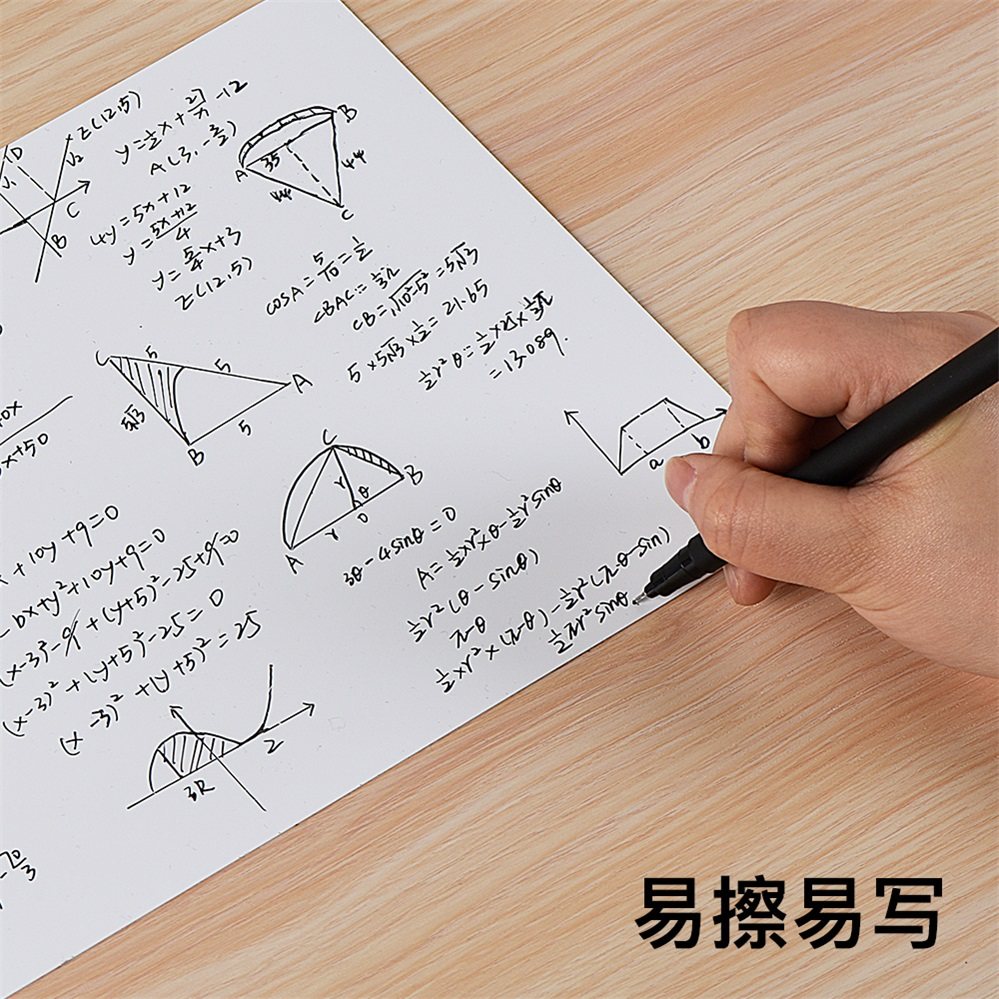 D
V₁
V₂
Z(12,5)
C
B
y=½x+27/x-12
A(3,-3/2)
4y=5x+12
y=5x+12/4
y=5/4x+3
Z(12,5)
A
B
C
35
44
44
cosA=5/10=½
∠BAC=⅓π
CB=√10²-5²=5√3
5×5√3×½=21.65
½r²θ=½×25×⅓π
=13.089.
C
5
5
A
5√3
B
5
x+50
C
B
A
r
r
θ
O
3θ-4sinθ=0
A=½×r²×θ-½r²sinθ
½r²(θ-sinθ)
π-θ
½×r²×(π-θ)-½r²(π-θ-sin)
½πr²sinθ
a
b
x+10y+9=0
-6x+y²+10y+9=0
(x-3)²-9+(y+5)²-25+9=0
(x-3)²+(y+5)²-25=0
(x-3)²+(y+5)²=25
2
3R
易擦易写